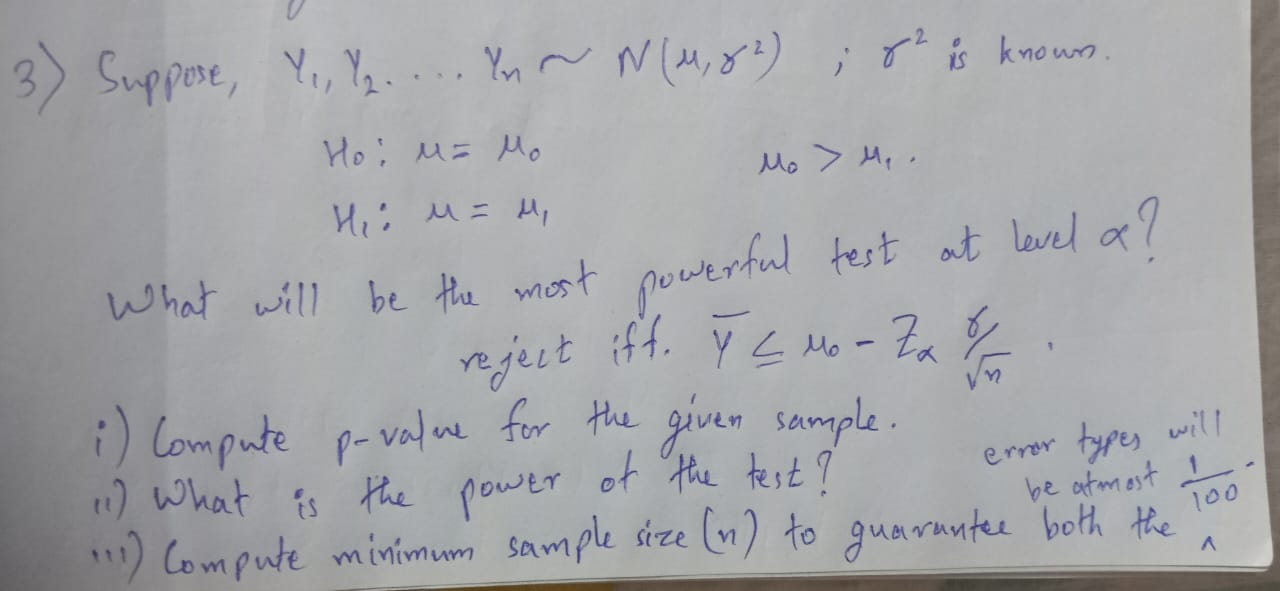 3) Suppose, Y₁, Y₂. . . . Yn ~ N(μ, γ²) ; γ² is known.
H₀: μ = μ₀ μ₀ > μ₁.
H₁: μ = μ₁
What will be the most powerful test at level α?
reject iff. Ȳ ≤ μ₀ - Zα γ/√n .
i) Compute p-value for the given sample.
ii) What is the power of the test?
iii) Compute minimum sample size (n) to guarantee both the ^
error types will
be atmost 1/100.